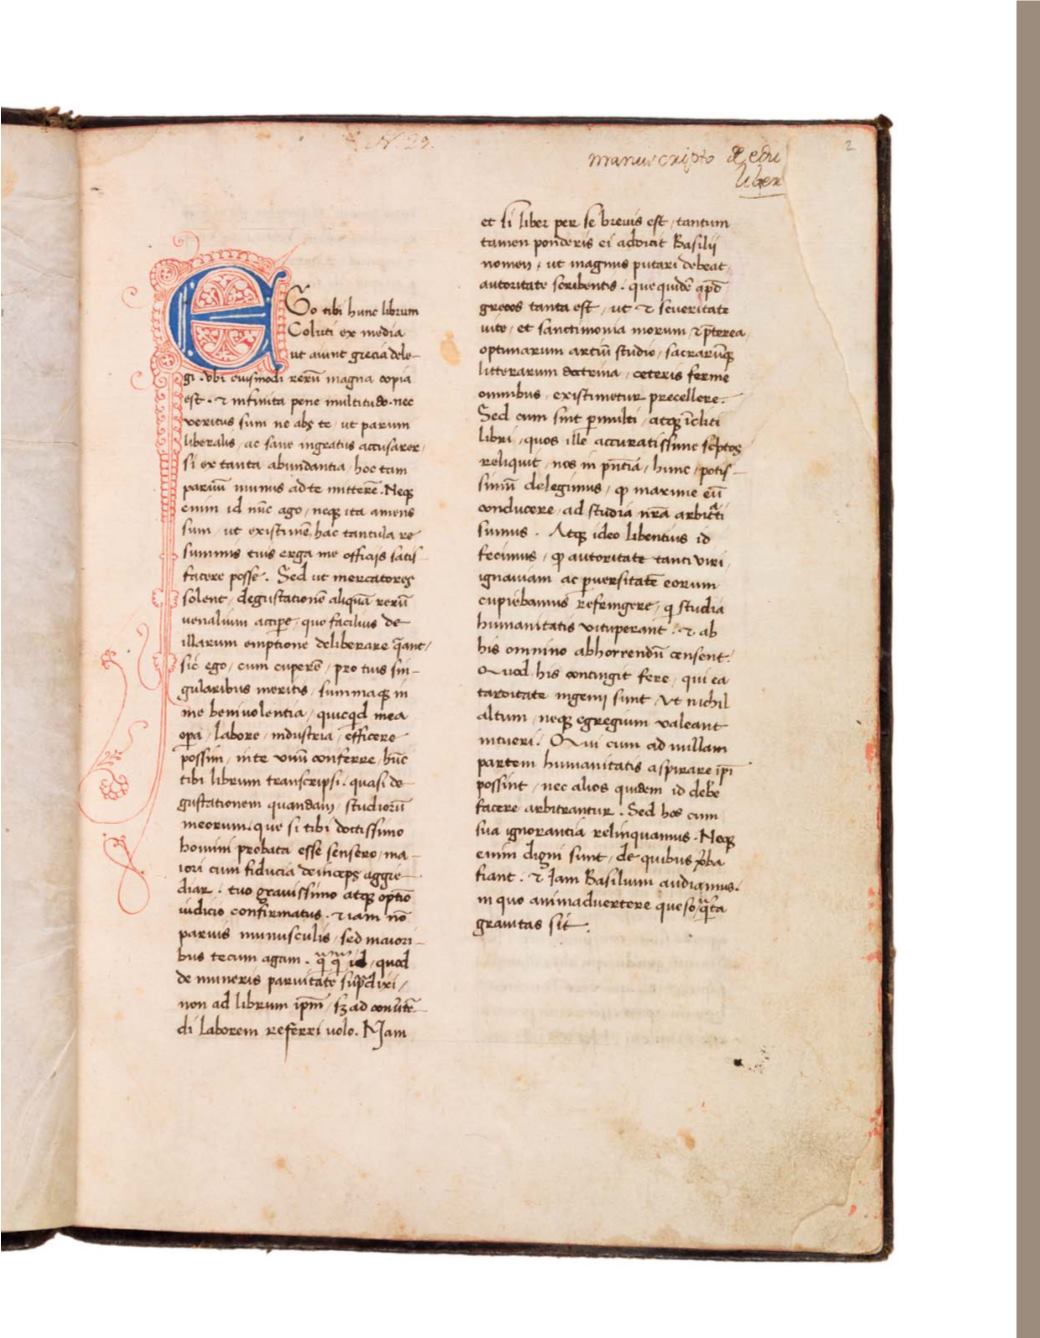 N. 29.
manuscripto
liber
2
EGo tibi hunc librum
Coluti ex media
ut aiunt grecia dele-
gi. vbi eiusmodi rerū magna copia
est. ⁊ infinita pene multitudo. nec
veritus sum ne abs te, ut parum
liberalis, ac sane ingratus accusarer,
si ex tanta abundantia, hoc tam
paruū munus ad te mitterē. Neqꝫ
enim id nūc ago, neqꝫ ita amens
sum, ut existimē hac tantula re
summis tuis erga me officijs satis
facere posse. Sed ut mercatores
solent, degustationē aliquā rerū
uenalium accipe, quo facilius de
illarum emptione deliberare q̄ant,
sic ego, cum cuperē, pro tuis sin-
gularibus meritis, summaqꝫ in
me beniuolentia, quicqd mea
opa, labore, industria, efficere
possim, in te vnū conferre, hūc
tibi librum transcripsi. quasi de
gustationem quandam, studiorū
meorum. que si tibi doctissimo
homini probata esse sensero, ma-
iori cum fiducia deinceps aggre
diar. tuo grauissimo atqꝫ optīo
iudicio confirmatus. ⁊ iam nō
paruis munusculis, sed maiori-
bus tecum agam. id, quod
de muneris paruitate sup̄ dixi,
non ad librum ip̄m, sꝫ ad conūtē
di laborem referri uolo. Nam
et si liber per se breuis est, tantum
tamen ponderis ei adiciat Basilij
nomen, ut magnus putari debeat
autoritate scribentis. que quidē apd
grecos tanta est, ut ⁊ seueritate
uite, et sanctimonia morum, ⁊ p̄terea,
optimarum artiū studio, sacrarūqꝫ
litterarum doctrina, ceteris ferme
omnibus, existimetur precellere.
Sed cum sint p̄multi, atqꝫ īcliti
libri, quos ille accuratissime sc̄ptos
reliquit, nos in p̄ntia, hunc, potis-
simū delegimus, qꝫ maxime eū
conducere, ad studia nr̄a arbitˢti
sumus. Atqꝫ ideo libentius id
fecimus, qꝫ autoritate tanti viri,
ignauiam ac p̄uersitatē eorum
cupiebamus refringere, q studia
humanitatis vituperant. ⁊ ab
his omnino abhorrendū censent.
Quod his contingit fere, qui ea
tarditate ingenij sunt, Vt nichil
altum, neqꝫ egregium valeant
intueri. Qui cum ad nullam
partem humanitatis aspirare ip̄i
possint, nec alios quidem id debē
facere arbitrantur. Sed hos cum
sua ignorantia relinquamus. Neqꝫ
enim digni sunt, de quibus v̄ba
fiant. ⁊ Iam Basilium audiamus.
in quo animaduertere queso, q̄ta
grauitas sit.